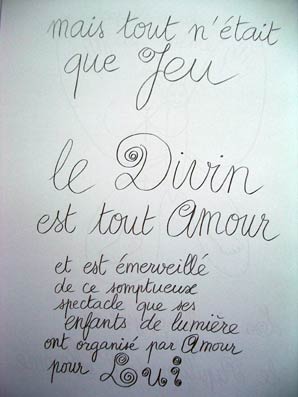 mais tout n'était
que Jeu
le Divin
est tout Amour
et est émerveillé
de ce somptueux
spectacle que ses
enfants de lumière
ont organisé par Amour
pour Lui